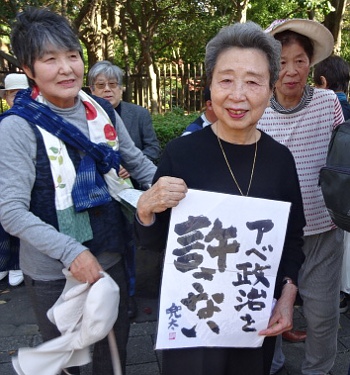 アベ政治を
許さない
兜太